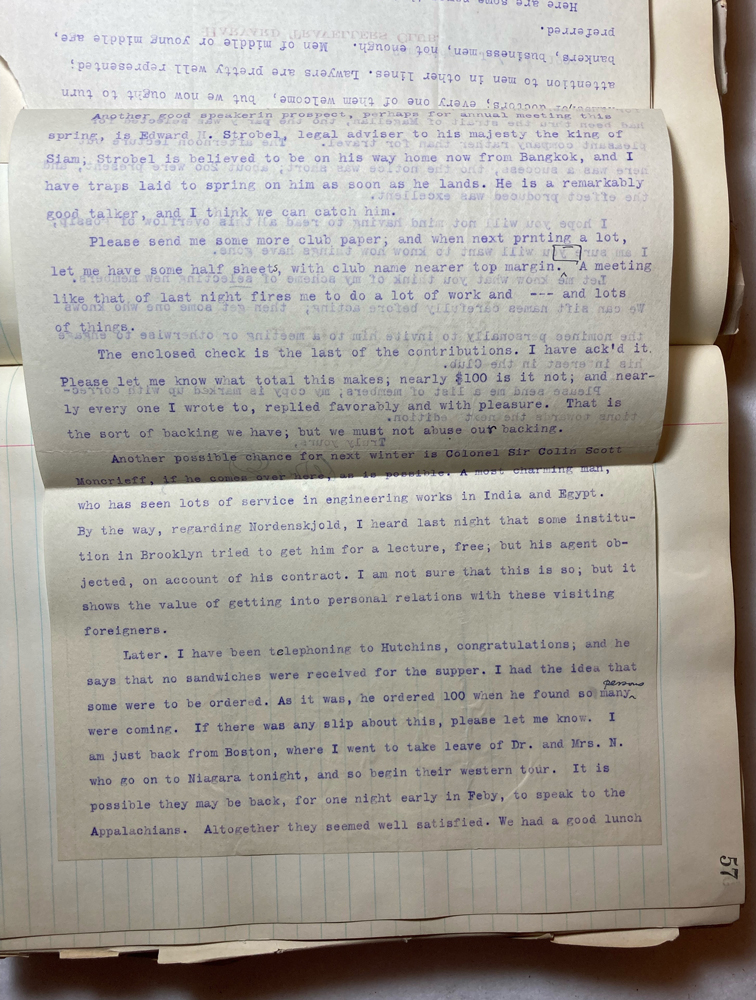 doctors; every one of them welcome, but we now ought to turn
attention to men in other lines. Lawyers are pretty well represented;
bankers, business men, not enough. Men of middle or young middle age,
preferred.
Here are some
HARVARD TRAVELLERS CLUB
Another good speakerin prospect, perhaps for annual meeting this
spring, is Edward H. Strobel, legal adviser to his majesty the king of
Siam; Strobel is believed to be on his way home now from Bangkok, and I
have traps laid to spring on him as soon as he lands. He is a remarkably
good talker, and I think we can catch him.
Please send me some more club paper; and when next prnting a lot,
let me have some half sheets, with club name nearer top margin. A meeting
like that of last night fires me to do a lot of work and --- and lots
of things.
The enclosed check is the last of the contributions. I have ack'd it.
Please let me know what total this makes; nearly $100 is it not; and near-
ly every one I wrote to, replied favorably and with pleasure. That is
the sort of backing we have; but we must not abuse our backing.
Another possible chance for next winter is Colonel Sir Colin Scott
Moncrieff, if he comes over here, as is possible. A most charming man,
who has seen lots of service in engineering works in India and Egypt.
By the way, regarding Nordenskjold, I heard last night that some institu-
tion in Brooklyn tried to get him for a lecture, free; but his agent ob-
jected, on account of his contract. I am not sure that this is so; but it
shows the value of getting into personal relations with these visiting
foreigners.
Later. I have been telephoning to Hutchins, congratulations; and he
says that no sandwiches were received for the supper. I had the idea that
some were to be ordered. As it was, he ordered 100 when he found so many persons
were coming. If there was any slip about this, please let me know. I
am just back from Boston, where I went to take leave of Dr. and Mrs. N.
who go on to Niagara tonight, and so begin their western tour. It is
possible they may be back, for one night early in Feby, to speak to the
Appalachians. Altogether they seemed well satisfied. We had a good lunch
57